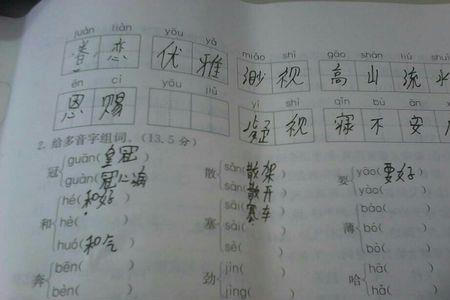 juàn liàn yōu yǎ miǎo shì gāo shān liú shuǐ
眷恋 优雅 渺视 高山流水
ēn cì yōu jiǔ yí shì qǐn bù ān
恩赐 疑视 寝不安
2. 给多音字组词。(13.5分)
冠 guān(皇冠) 散 sǎn(散架) 要 yāo(要好)
guàn(冠心病) sàn(散开) yào(
和 hé(和好) 塞 sāi(塞车) 薄 báo(
hè( ) sài( ) bó(
huó(和气) sè( ) bò(
奔 bēn( ) 劲 jìn( ) 哈 hā(
bèn( ) jìng( ) hǎ(